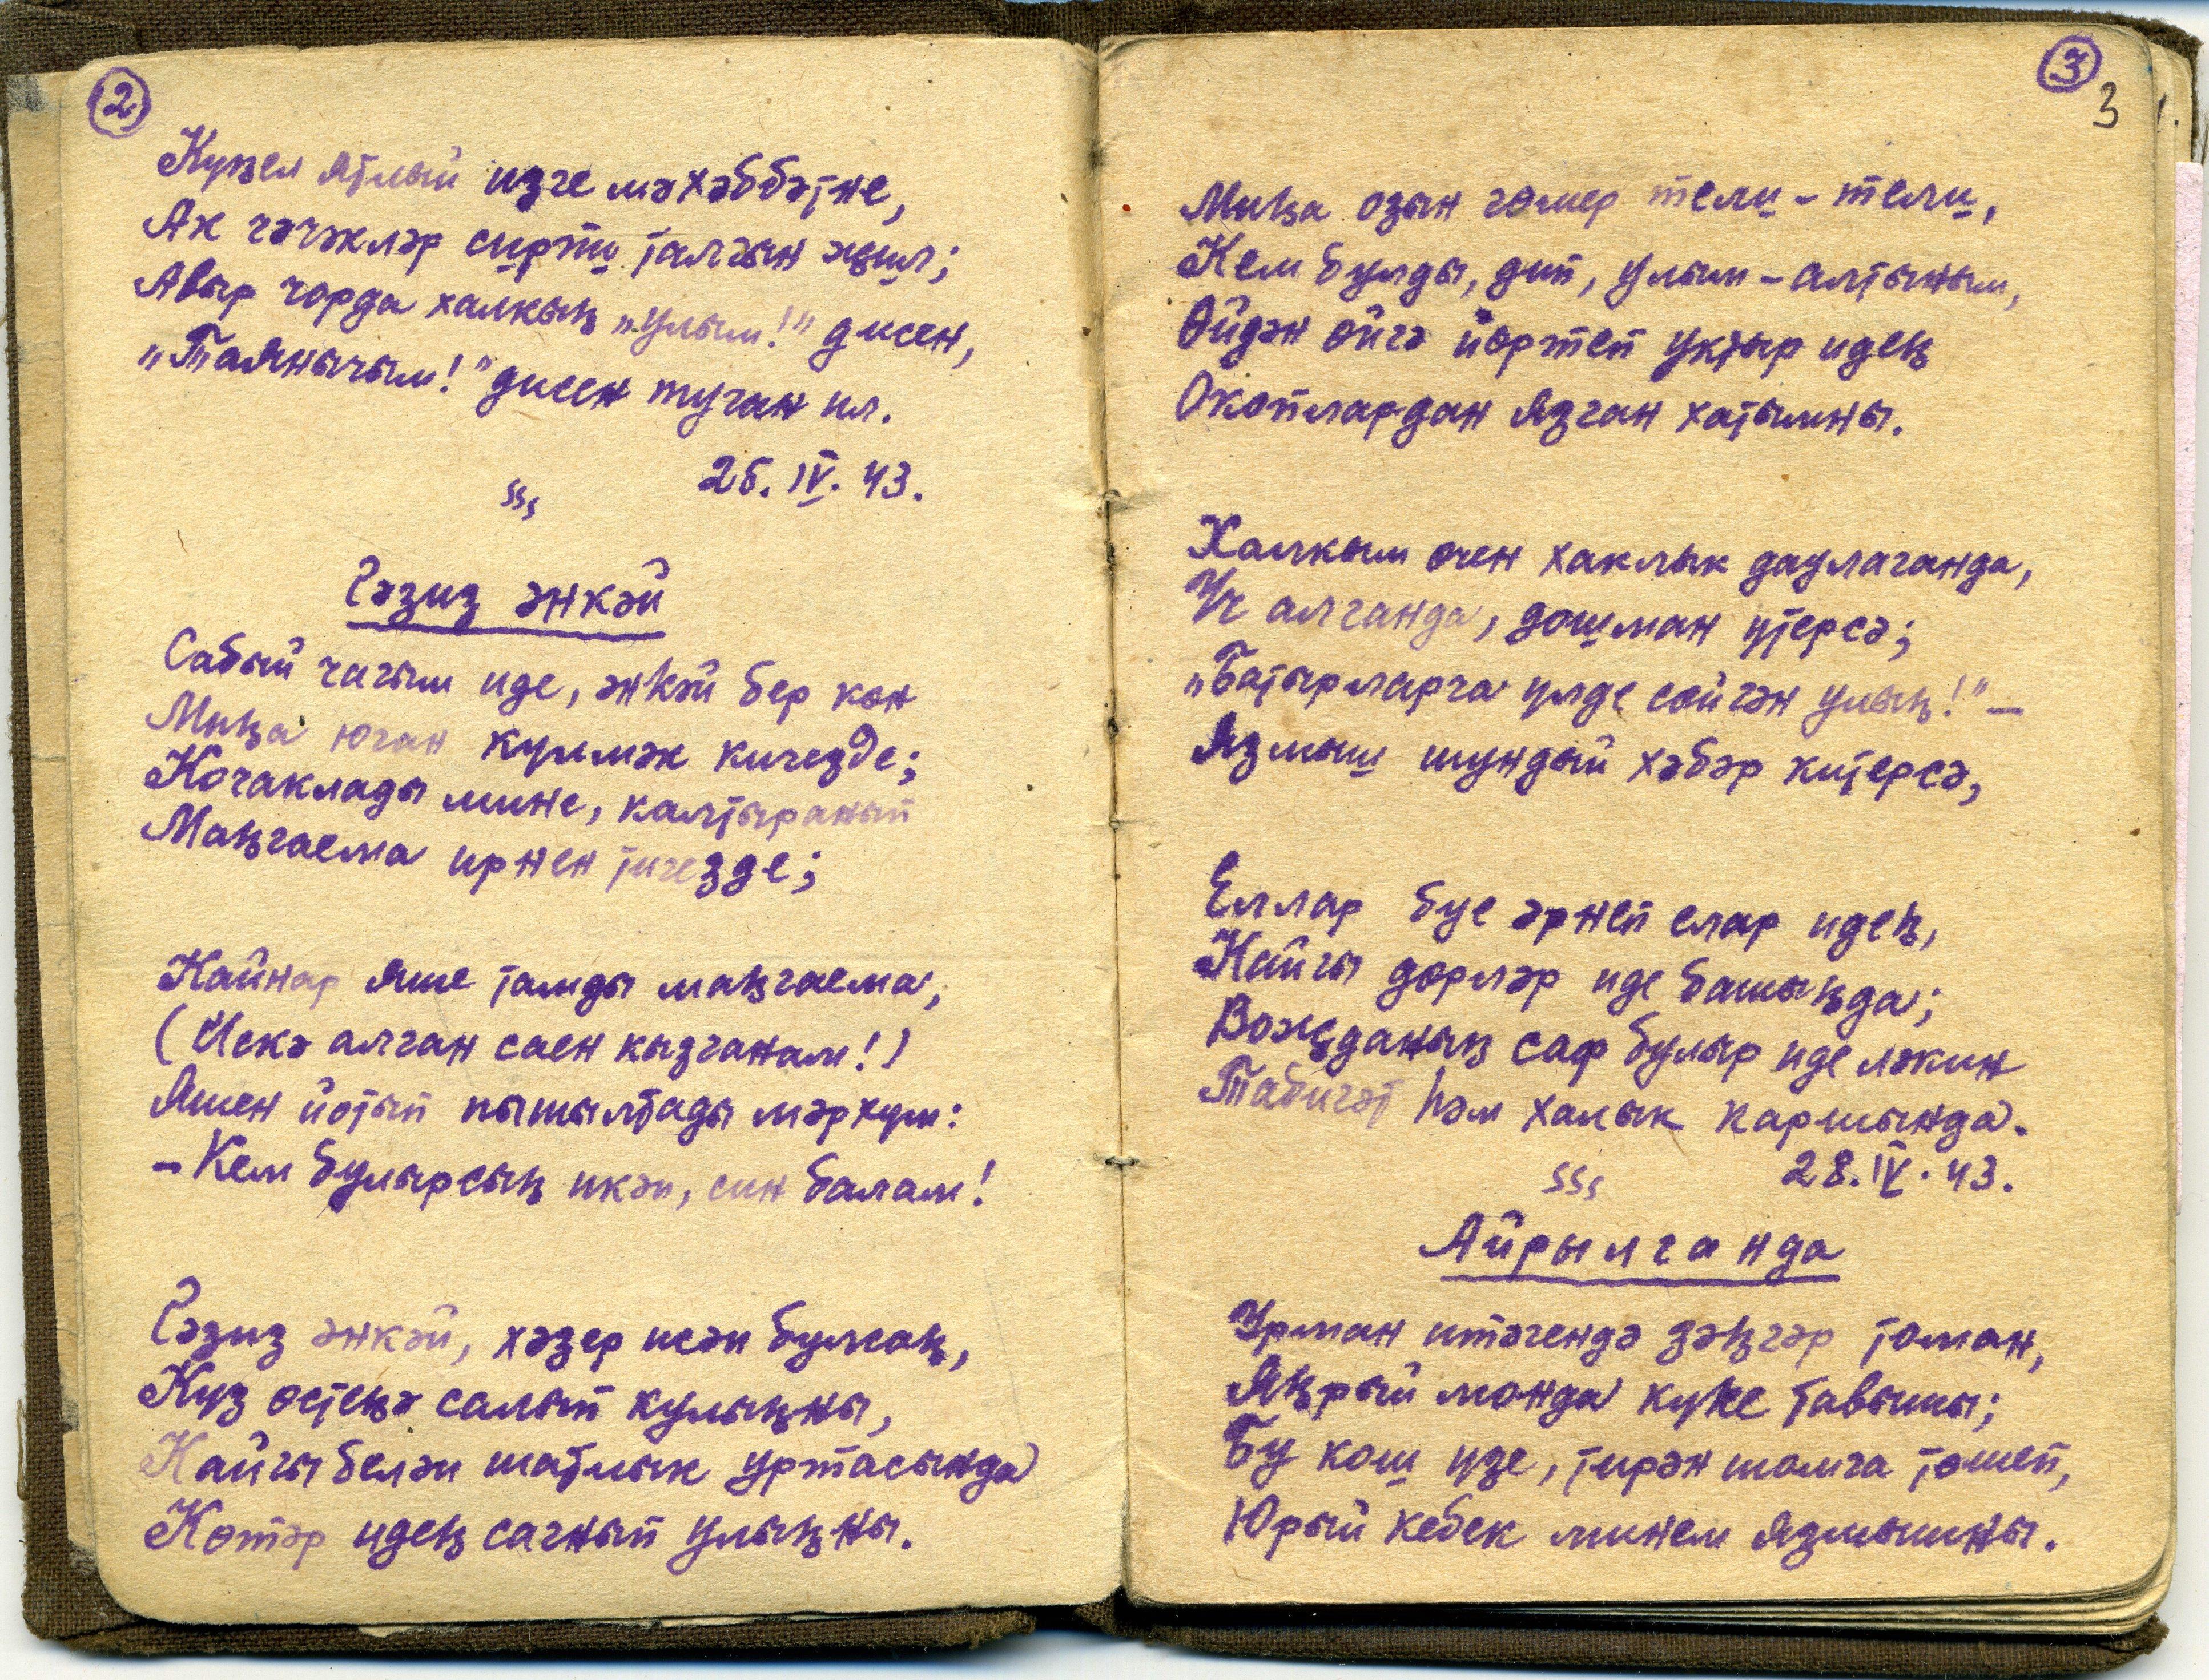 2
Күңел ятлый изге мәхәббәтне,
Ак чәчәкләр сирпи талгын җил;
Авыр чорда халкың „улым!” дисен,
„Таянычым!” дисен туган ил.
26. IV. 43.
Газиз әнкәй
Сабый чагым иде, әнкәй бер көн
Миңа юган күлмәк кигезде;
Кочаклады мине, калтыранып
Маңгаема ирнен тигезде;
Кайнар яше тамды маңгаема,
(Искә алган саен кызганам!)
Яшен йотып пышылтады мәрхүм:
– Кем булырсың икән, син балам!
Газиз әнкәй, хәзер исән булсаң,
Күз өстеңә салып кулыңны,
Кайгы белән шатлык уртасында
Көтәр идең сагнып улыңны.
3
3
Миңа озын гөмер тели - тели,
Кем булды, дип, улым - алтыным,
Өйдән өйгә йөртеп уктыр идең
Окоплардан язган хатымны.
Халкым өчен хаклык даулаганда,
Үч алганда, дошман үтерсә;
„Батырларча үлде сөйгән улың!” –
Язмыш шундый хәбәр китерсә,
Еллар буе әрнеп елар идең,
Кайгы дөрләр иде башыңда;
Вөҗданың саф булыр иде ләкин
Табигәт һәм халык каршында.
28. IV. 43.
Айрылганда
Урман итәгендә зәңгәр томан,
Яңрый монда күке тавышы;
Бу кош үзе, тирән шомга төшеп,
Юрый кебек минем язмышны.